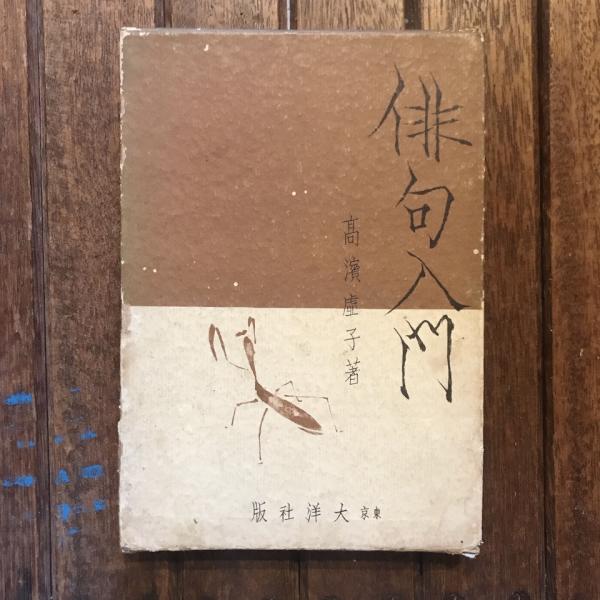 俳句入門
高濱虚子著
東京 大洋社版